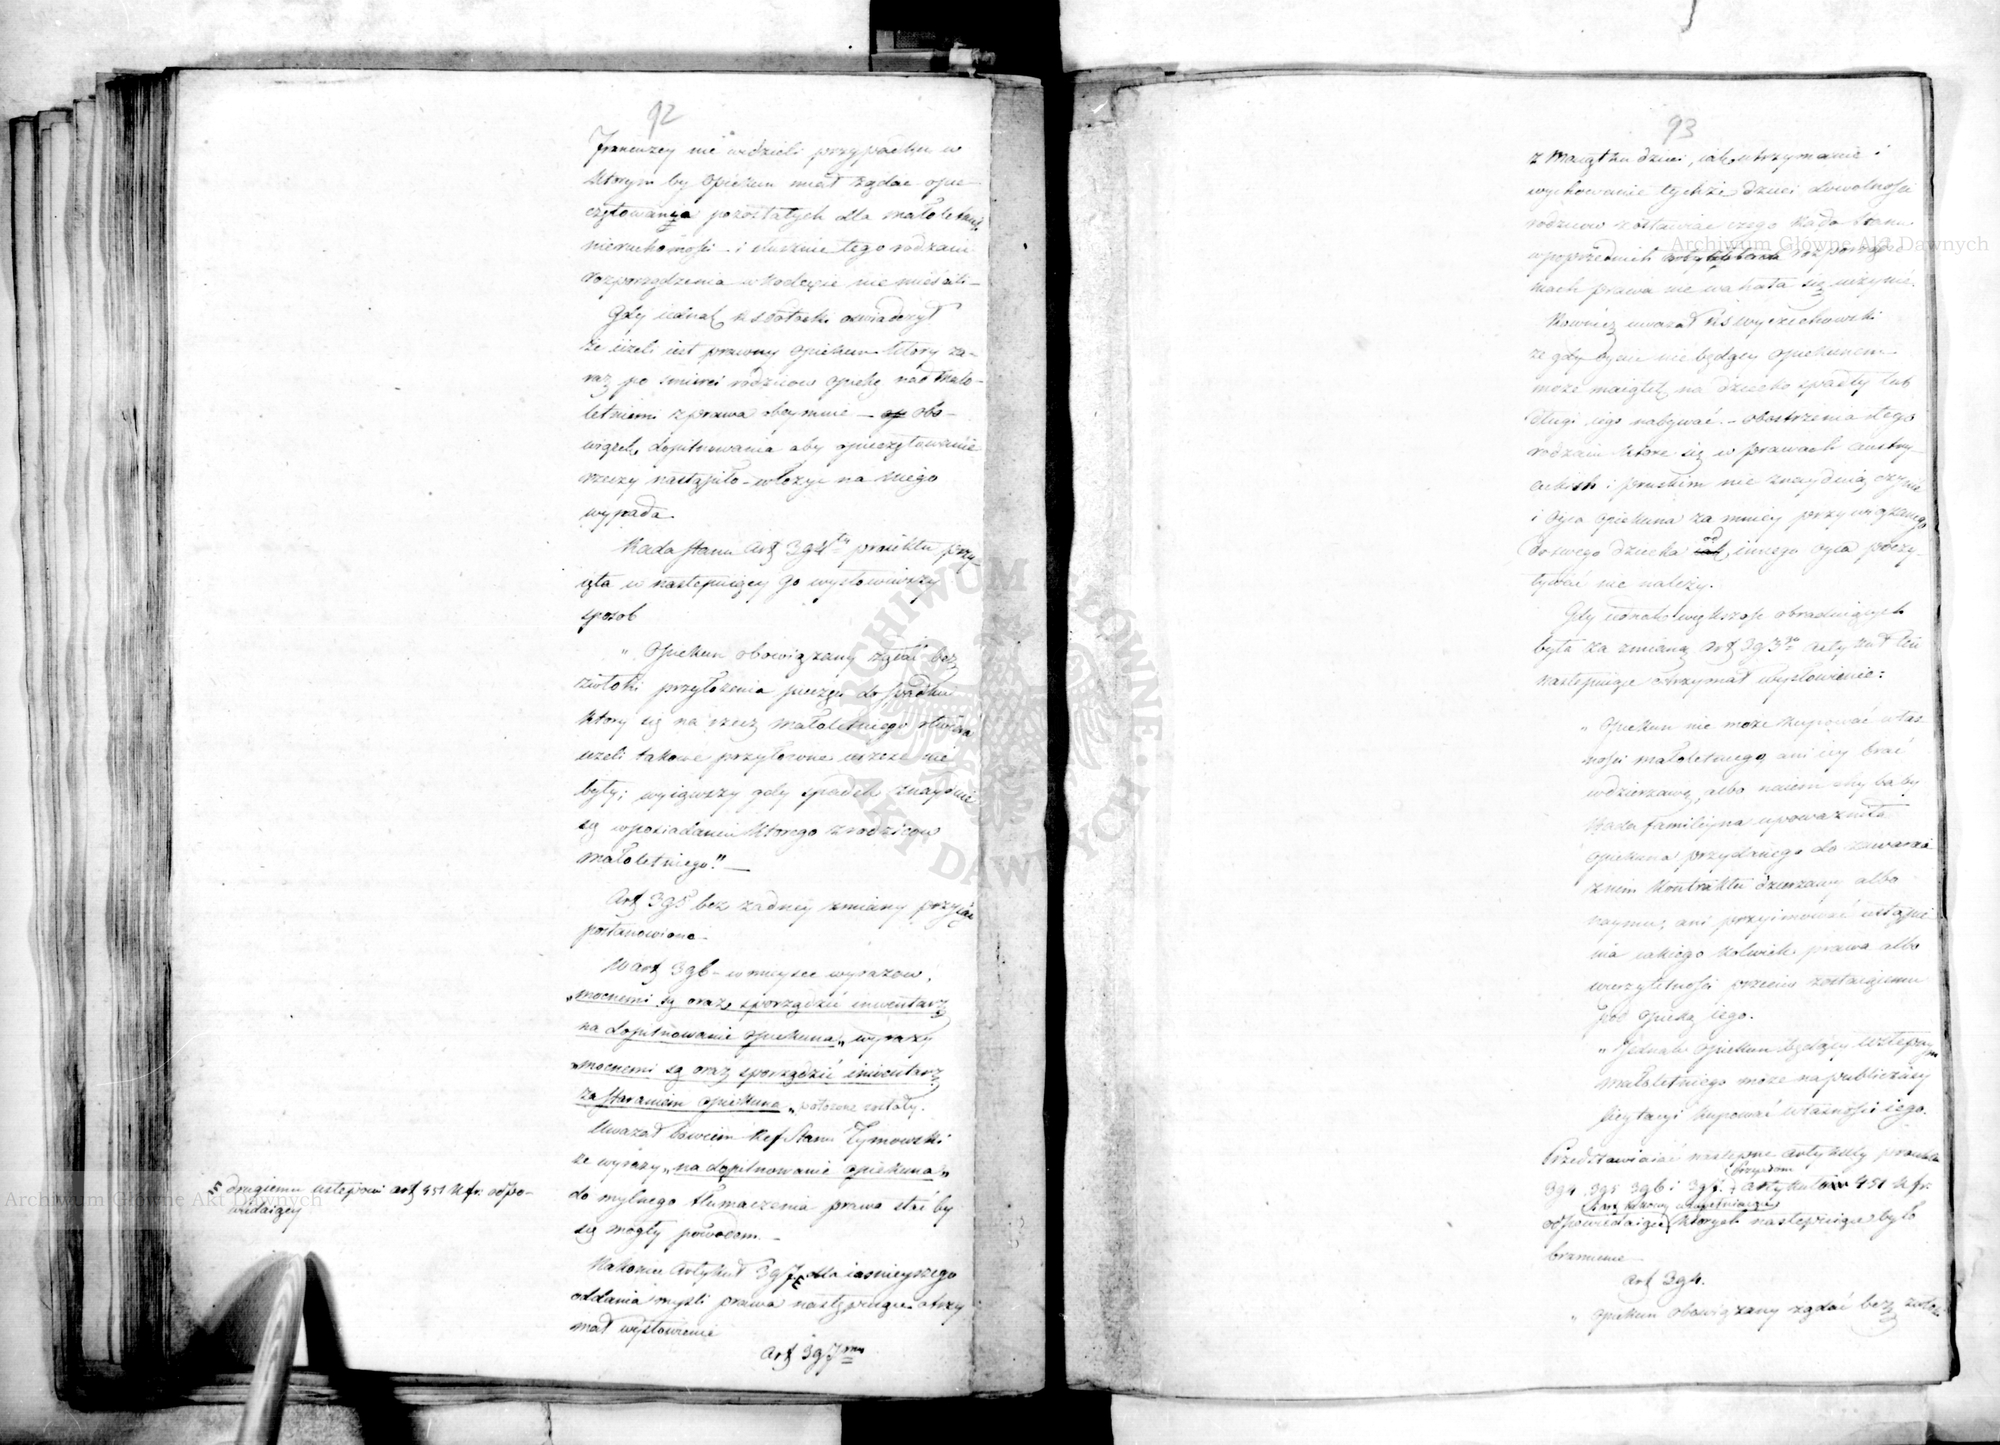 92
Francuzcy nie widzieli przypadku w
którym by opiekun miał żądać opie-
czętowania pozostałych dla małoletnich
nieruchomości - i słusznie tego rodzaiu
rozporządzenia w kodexie nie mieścili -
Gdy iednak oświadczył
że ieżeli iest prawny opiekun który za-
raz po śmierci rodziców opiekę nad mało-
letniemi z prawa obeymuie - obo-
wiązek dopilnowania aby opieczętowanie
rzeczy nastąpiło - włożyć na niego
wypada.
Rada Stanu Art 394 proiektu przy-
ięła w następuiący go wysłowiwszy
sposob
" Opiekun obowiązany żądać bez
zwłoki przyłożenia pieczęci do spadku
który się na rzecz małoletniego otwiera
ieżeli takowe przyłożone ieszcze nie
były; wyiąwszy gdy spadek znayduie
się w posiadaniu którego z rodziców
małoletniego." -
Art 395 bez żadney zmiany przyiąć
postanowiono -
W art 396 - w mieysce wyrazow,
"mocnemi są oraz sporządzić inwentarz
na dopilnowanie opiekuna" wyrazy
"mocnemi są oraz sporządzić inwentarz
za staraniem opiekuna" położone zostały.
Uważał bowiem Ref Stanu Tymowski
że wyrazy "na dopilnowanie opiekuna"
do mylnego tłumaczenia prawa stać by
się mogły powodem. -
Nakoniec Artykuł 397 dla iaśnieyszego
oddania myśli prawa następuiące otrzy
mał wysłowienie
Art 397
drugiemu ustępowi art 451 K fr: odpo-
wiadaiący
93
z maiątku dzieci, iak utrzymanie i
wychowanie tychże dzieci dowolności
rodziców zostawiać czego Rada Stanu
w poprzednich rozporządze-
niach prawa nie wahała się uczynić.
Rownież uważał RS Wyczechowski
że gdy oyciec nie będący opiekunem
może maiątek na dziecko spadły lub
długi iego nabywać - obostrzenia tego
rodzaiu które się w prawach austry-
ackich i pruskim nie znayduią czynić
i oyca opiekuna za mniey przywiązanego
do swego dziecka od innego oyca poczy-
tywać nie należy.
Gdy iednak większość obraduiących
była za zmianą art 393 Artykuł ten
następuiące otrzymał wysłowienie:
" Opiekun nie może kupować włas
ności małoletniego ani iey brać
w dzierżawę, albo naiem chyba by
Rada familiyna upoważniła
opiekuna przydanego do zawarcia
z nim kontraktu dzierżawy albo
naymu; ani przyimować ustąpie
nia iakiego kolwiek prawa albo
wierzytelności przeciw zostaiącemu
pod opieką iego.
" Jednak opiekun będący wstępnym
małoletniego może na publiczney
licytacyi kupować własności iego.
Przedstawiaiąc następne artykuły proiektu
394, 395 396 i 397 artykułowi 451 K fr:
odpowiadaiące których następuiące było
brzmienie -
Art 394.
" Opiekun obowiązany żądać bez zwłoki
Archiwum Główne Akt Dawnych
Archiwum Główne Akt Dawnych
ARCHIWUM GŁÓWNE AKT DAWNYCH